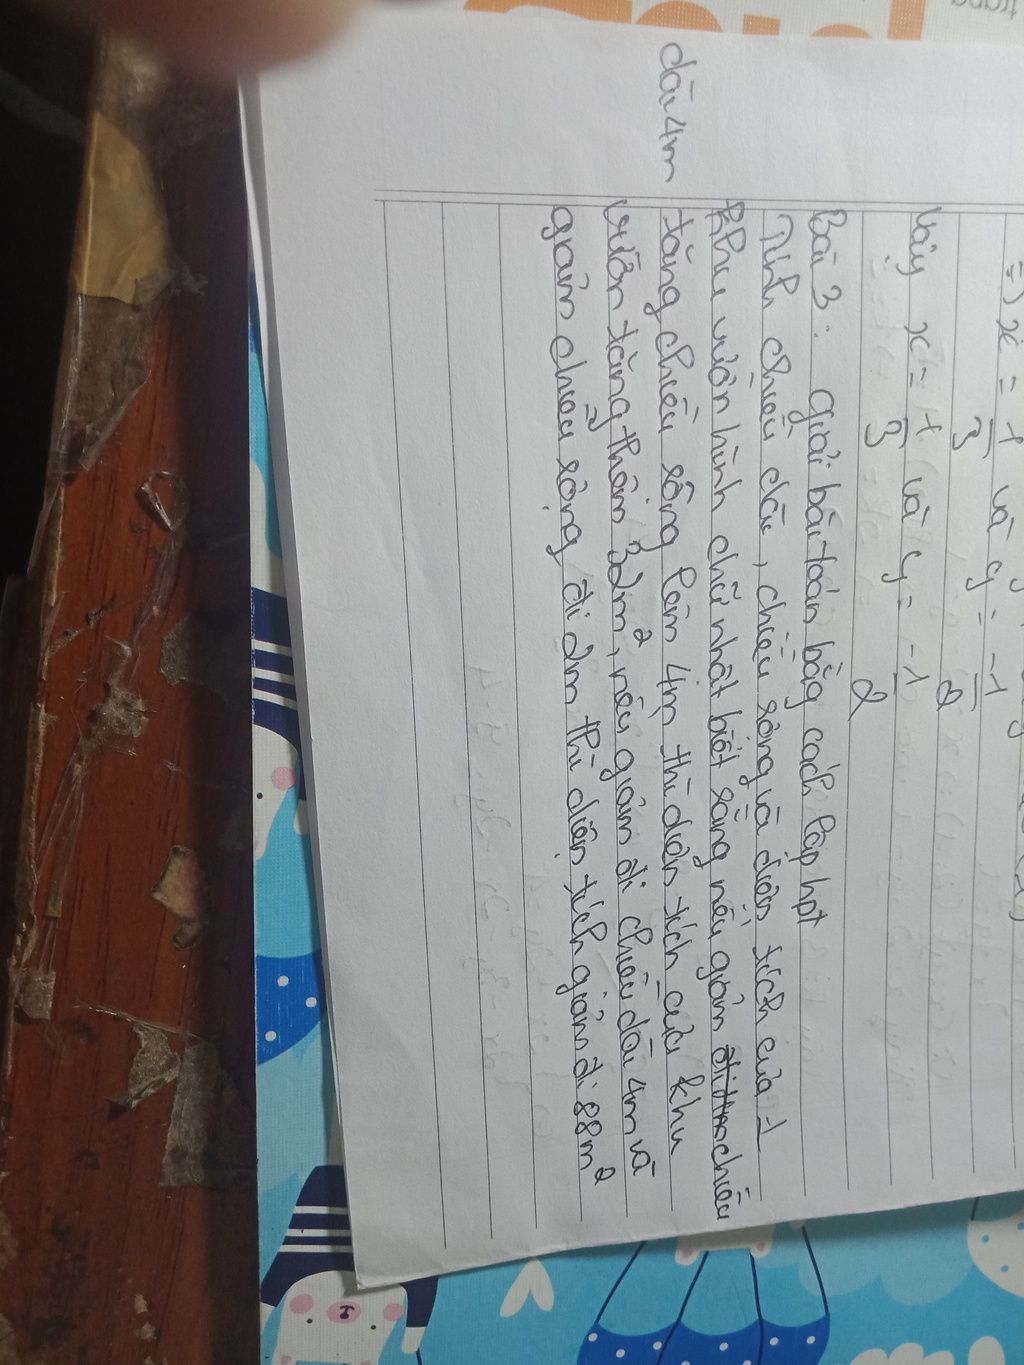 =) x = 1/3 và y = -1/2
Vậy x = 1/3 và y = -1/2
Bài 3: giải bài toán bằg cách lập hpt
Tính chiều dài, chiều rộng và diện tích của 1
khu vườn hình chữ nhật biết rằng nếu giảm chiều
dài 4m tăng chiều rộng lên 4m thì diện tích của khu
vườn tăng thêm 32m², nếu giảm đi chiều dài 4m và
giảm chiều rộng đi 2m thì diện tích giảm đi 88m²